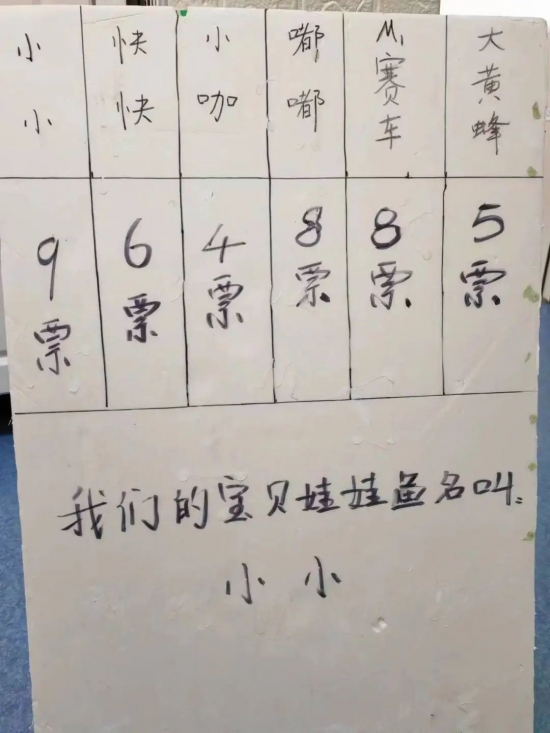 小小 快快 小咖 嘟嘟 M1赛车 大黄蜂
9票 6票 4票 8票 8票 5票
我们的宝贝娃娃鱼名叫：
小小